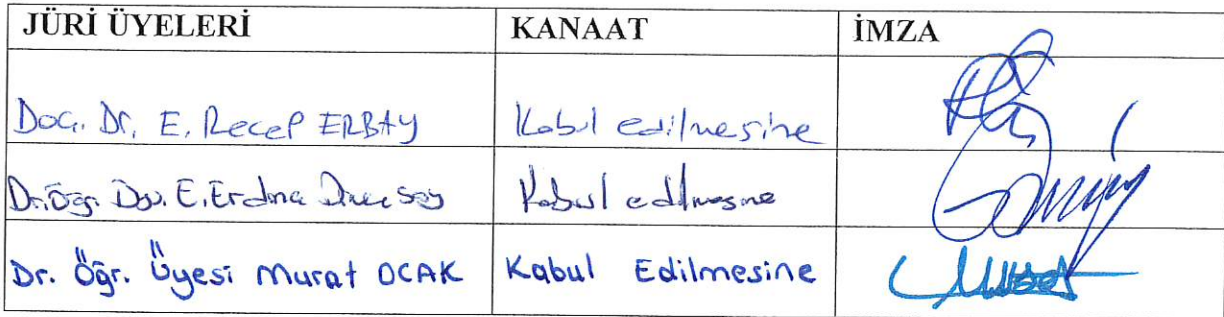 JÜRİ ÜYELERİ KANAAT İMZA
Doç. Dr. E. Recep ERBAY Kabul edilmesine
Dr. Öğr. E. Kabul edilmesine
Dr. Öğr. Üyesi Murat OCAK Kabul Edilmesine